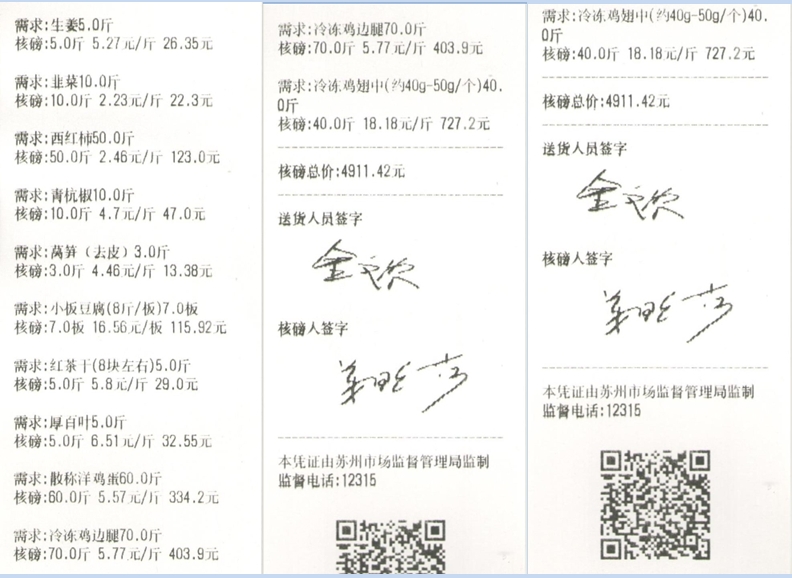 需求:生姜5.0斤
核磅:5.0斤 5.27元/斤 26.35元
需求:韭菜10.0斤
核磅:10.0斤 2.23元/斤 22.3元
需求:西红柿50.0斤
核磅:50.0斤 2.46元/斤 123.0元
需求:青杭椒10.0斤
核磅:10.0斤 4.7元/斤 47.0元
需求:莴笋（去皮）3.0斤
核磅:3.0斤 4.46元/斤 13.38元
需求:小板豆腐(8斤/板)7.0板
核磅:7.0板 16.56元/板 115.92元
需求:红茶干(8块左右)5.0斤
核磅:5.0斤 5.8元/斤 29.0元
需求:厚百叶5.0斤
核磅:5.0斤 6.51元/斤 32.55元
需求:散称洋鸡蛋60.0斤
核磅:60.0斤 5.57元/斤 334.2元
需求:冷冻鸡边腿70.0斤
核磅:70.0斤 5.77元/斤 403.9元
需求:冷冻鸡边腿70.0斤
核磅:70.0斤 5.77元/斤 403.9元
需求:冷冻鸡翅中(约40g-50g/个)40.
0斤
核磅:40.0斤 18.18元/斤 727.2元
核磅总价:4911.42元
送货人员签字
核磅人签字
本凭证由苏州市场监督管理局监制
监督电话:12315
需求:冷冻鸡翅中(约40g-50g/个)40.
0斤
核磅:40.0斤 18.18元/斤 727.2元
核磅总价:4911.42元
送货人员签字
核磅人签字
本凭证由苏州市场监督管理局监制
监督电话:12315